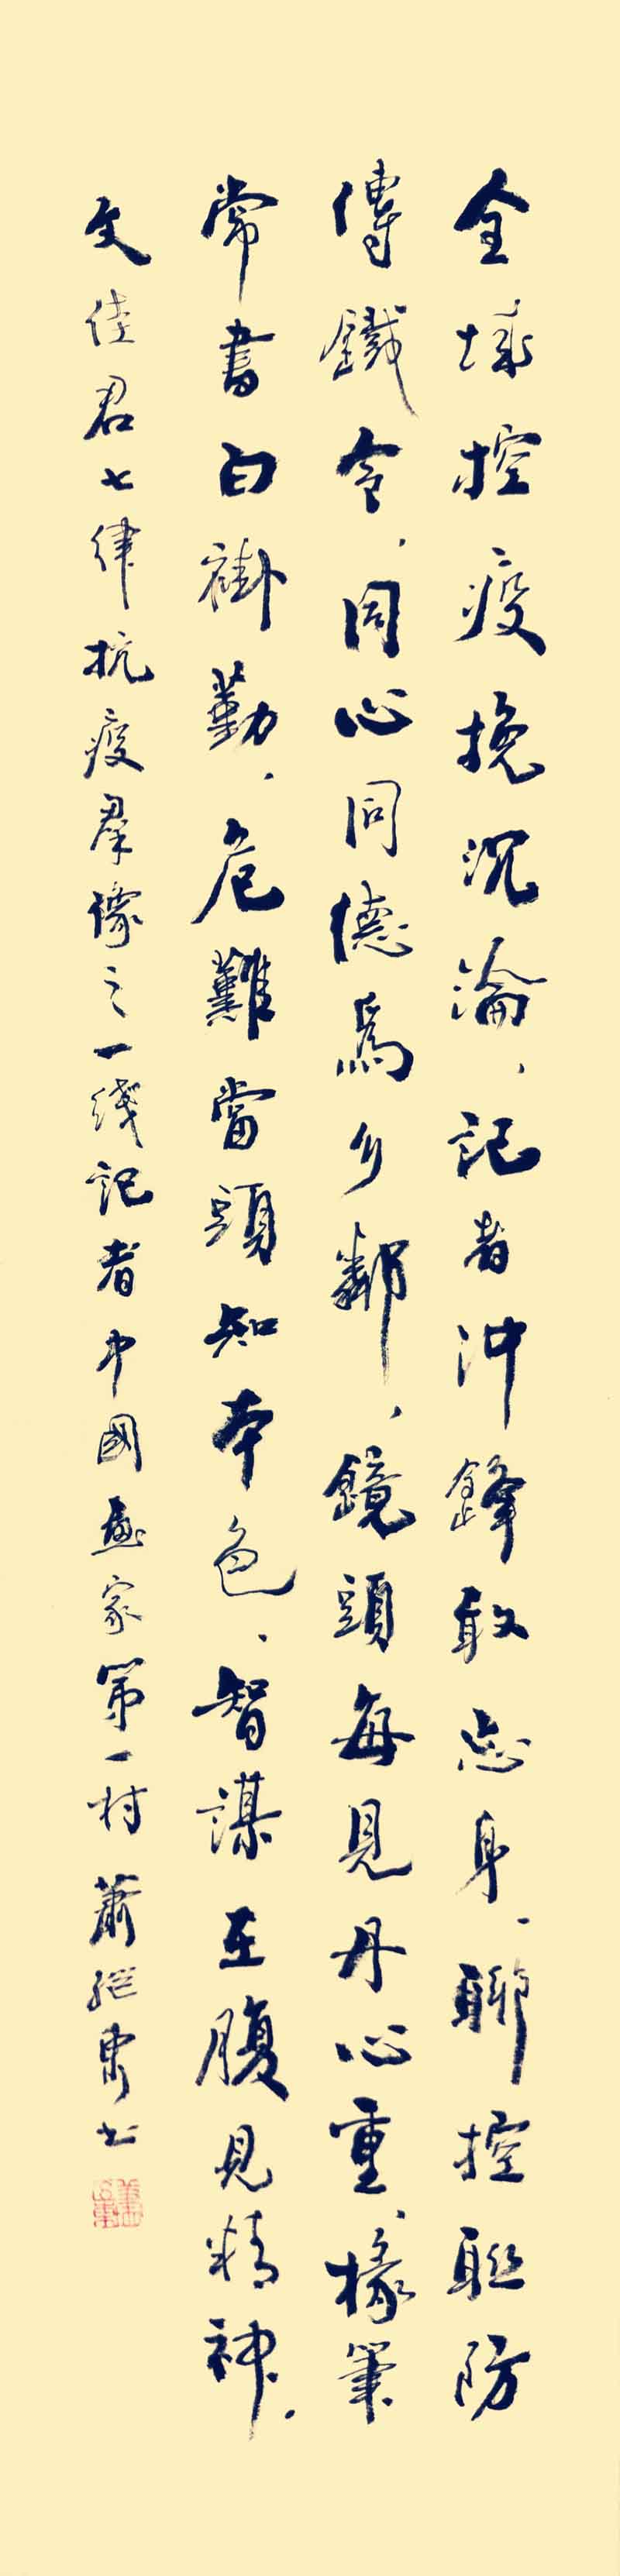 全域控疫挽沉淪、記者沖鋒敢忘身、聯控聯防
傳鐵令、同心同德爲乡鄰、鏡頭每見丹心重、椽筆
常書白褂勤、危難當頭知本色、智謀在腹見精神。
文佳君七律抗疫羣像之一綫記者中國画家第一村蕭继东书